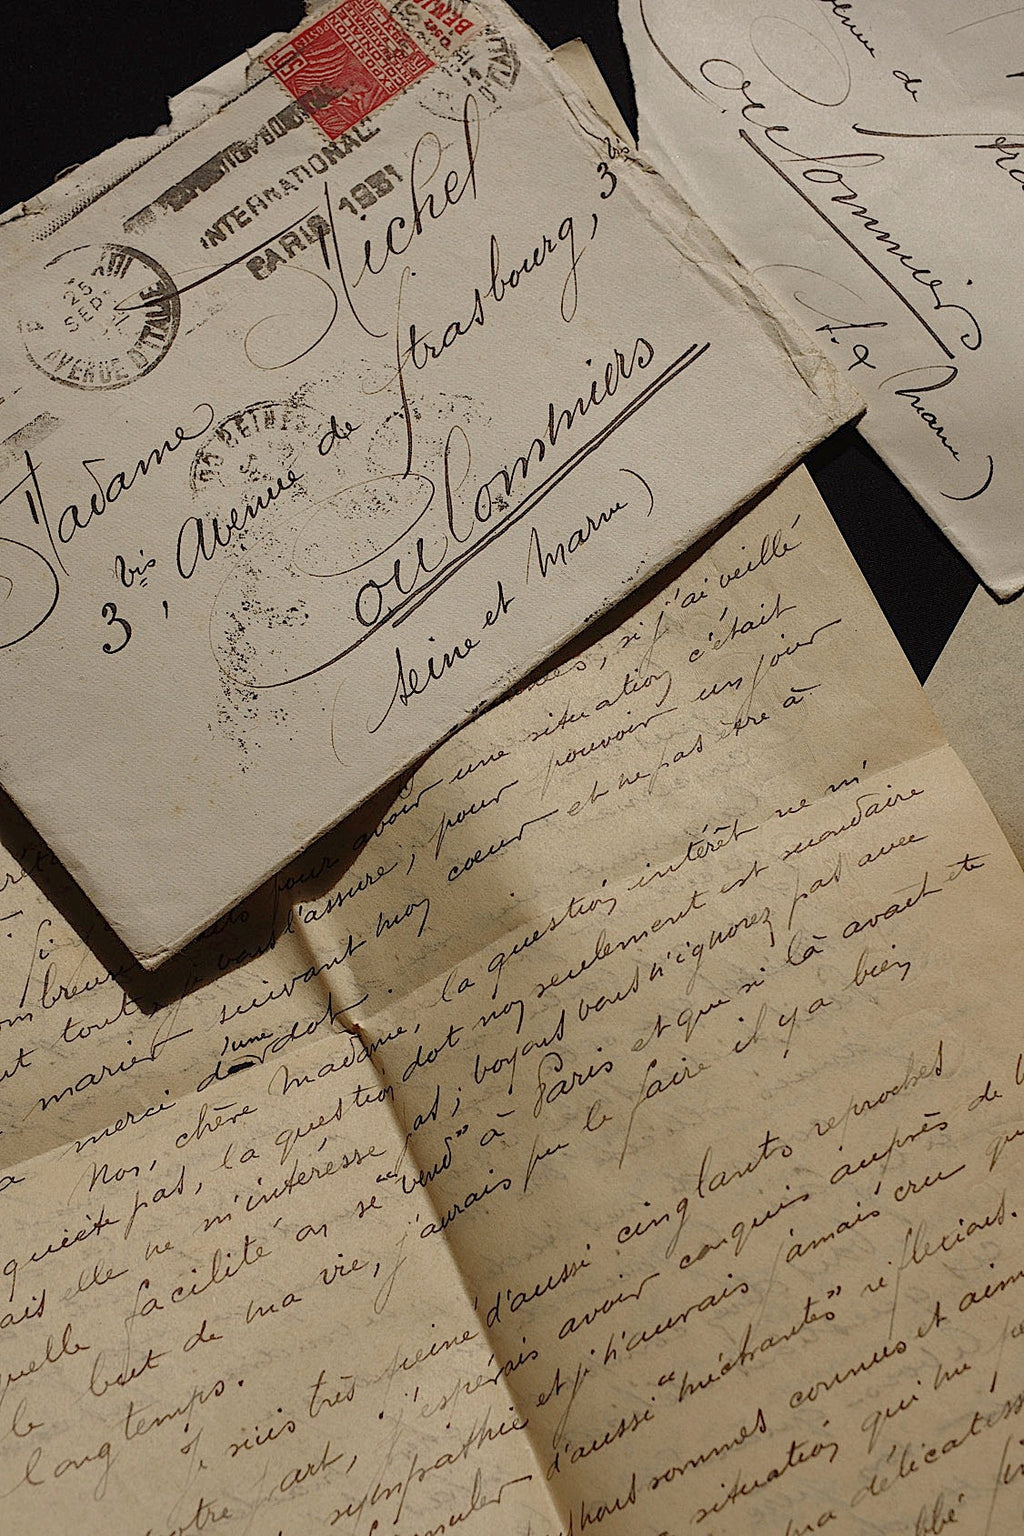 INTERNATIONALE
PARIS 1931
25
SEPT
AVENUE D'ITALIE
POSTES
Madame Michel
3bis, Avenue de Strasbourg, 3bis
Coulommiers
(Seine et Marne)
de
Coulommiers
(S. & Marne)
si j'ai veillé
pour avoir une situation c'était
tout je vous l'assure, pour pouvoir un jour
marier suivant mon coeur et ne pas être à
merci d'une dot.
Non, chère Madame, la question intérêt ne m'
quiète pas, la question dot non seulement est secondaire
ais elle ne m'intéresse pas; voyons vous n'ignorez pas avec
quelle facilité on se "vend" à Paris et que si là avait été
le but de ma vie, j'aurais pu le faire il y a bien
longtemps.
Je suis très peiné d'aussi cinglants reproches
votre part, j'espérais avoir conquis auprès de
sympathie et je n'aurais jamais cru
d'aussi "méchantes" réflexions.
nous sommes connus et
situation qui me
ma délicatesse